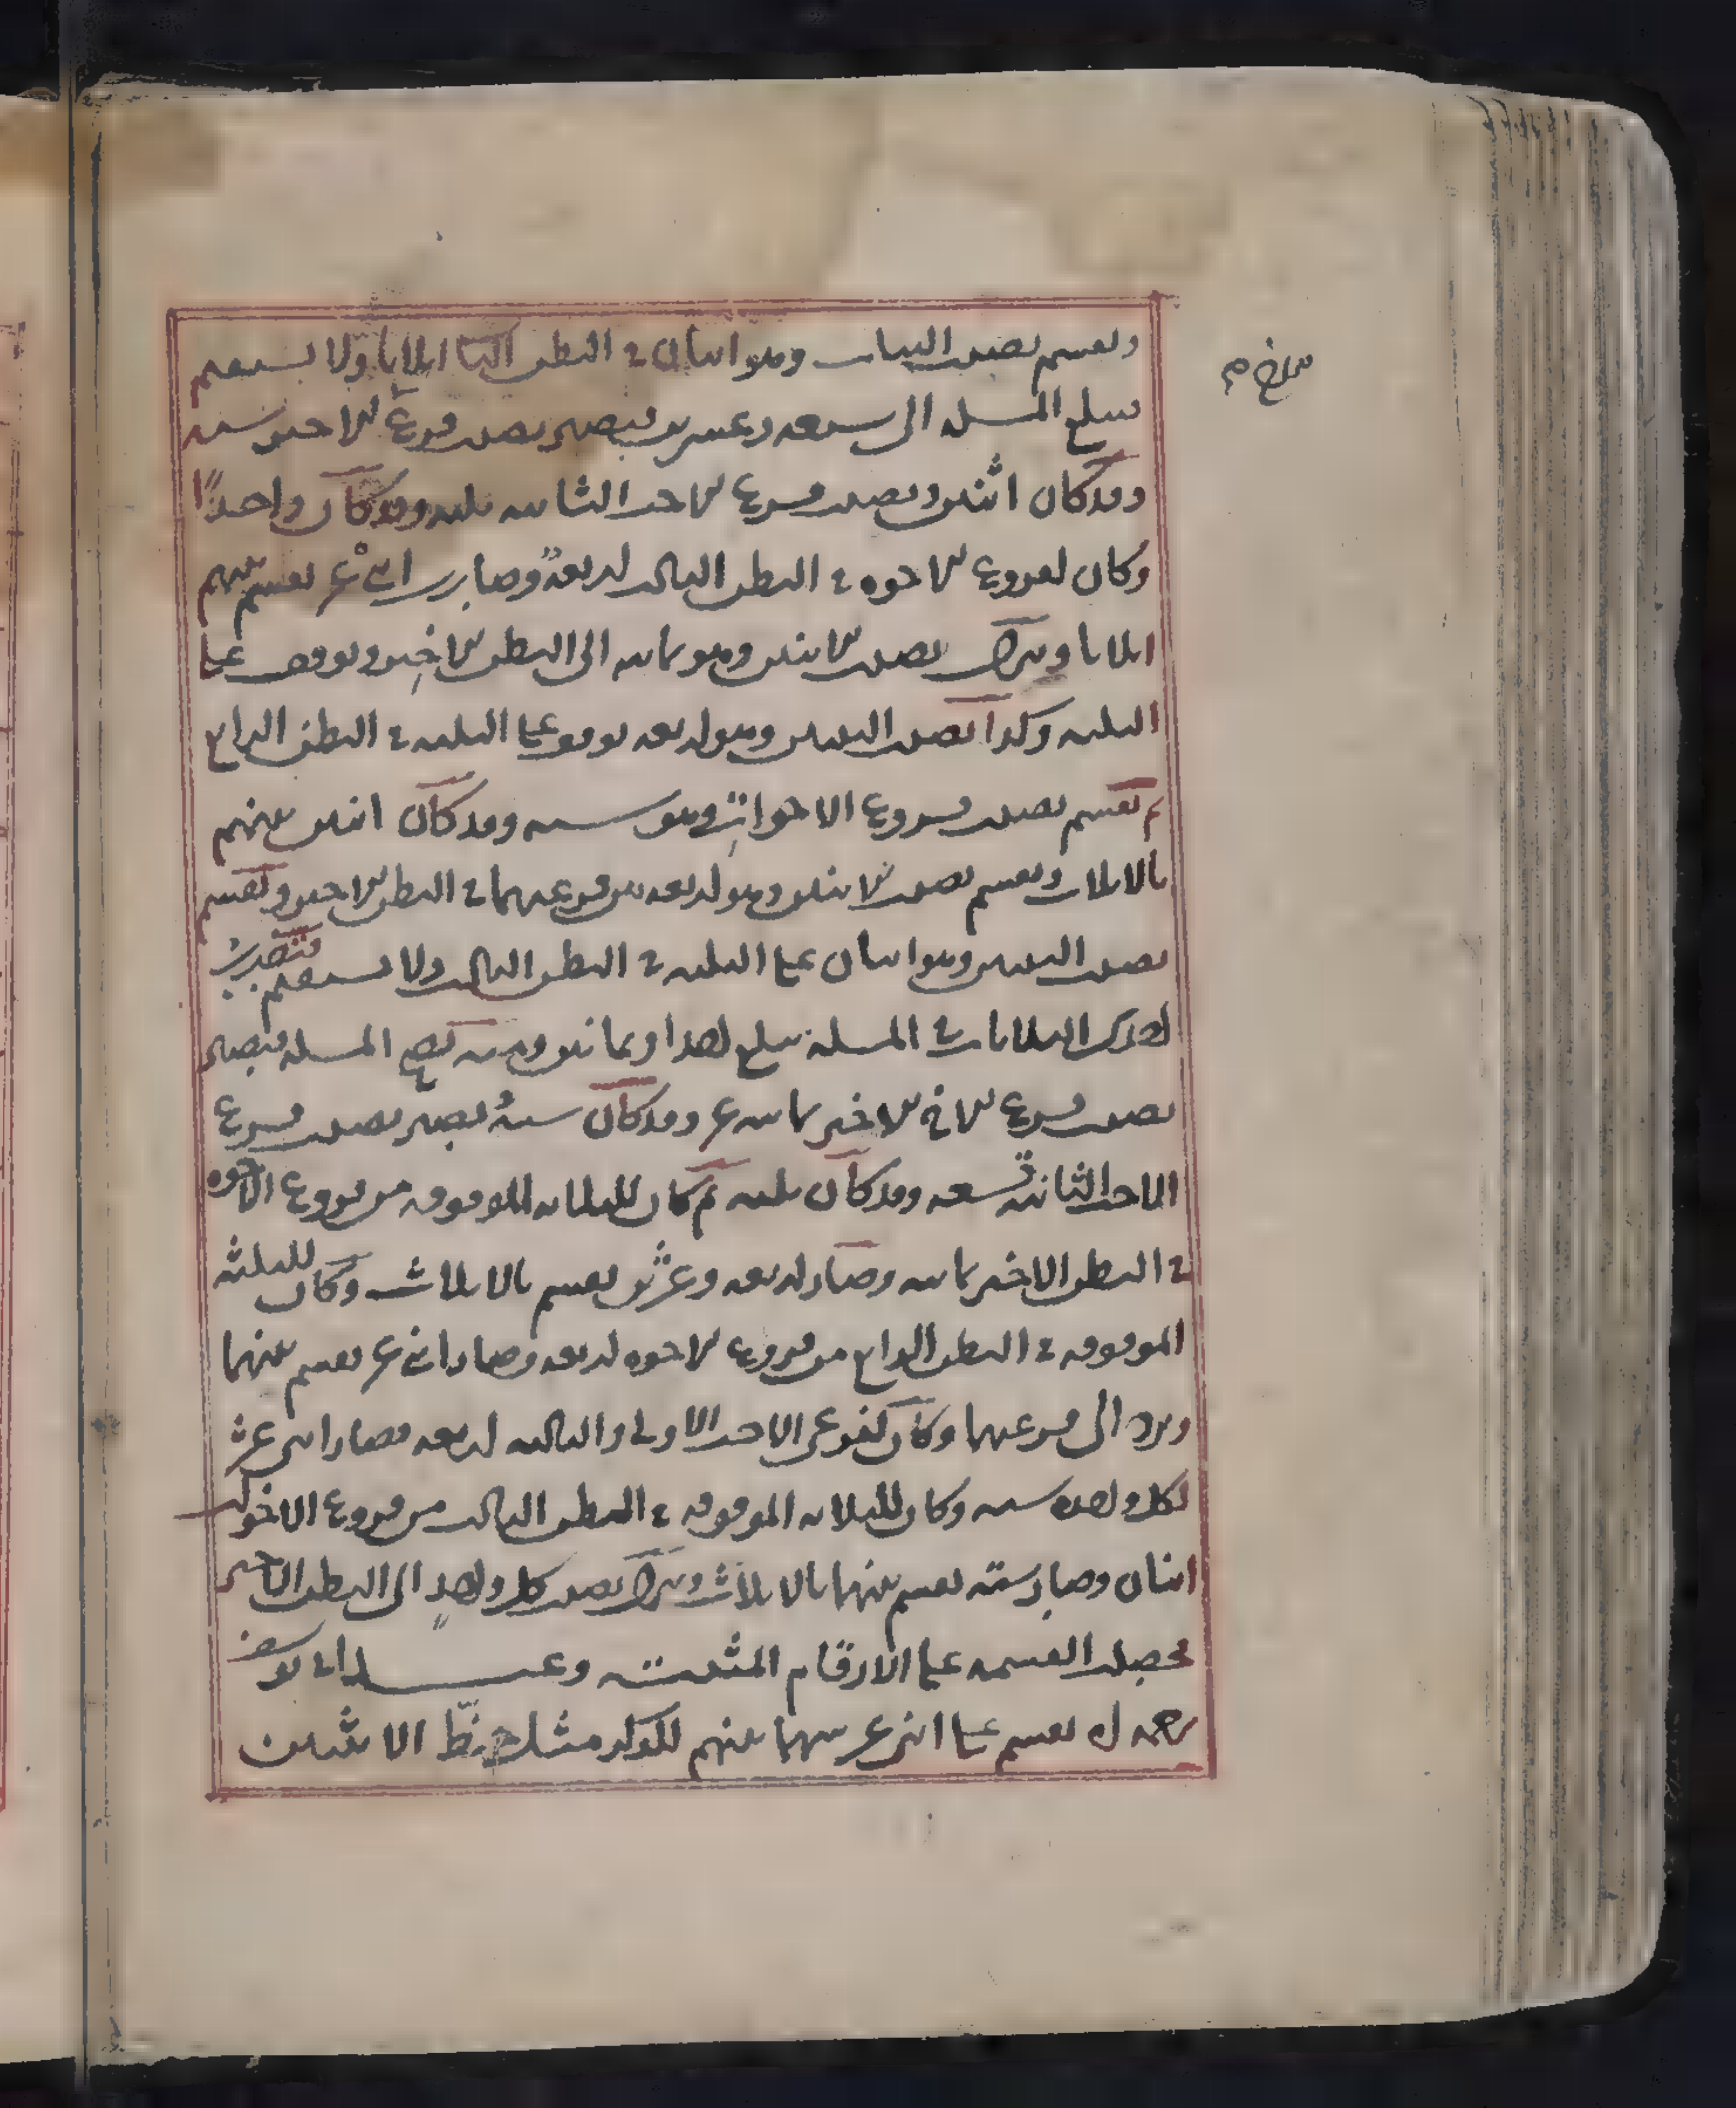 ونقسم نصيب البنات وهو اثنان في البطن الثاني اثلاثا ولا يستقيم
تبلغ المسئلة الى سبعة وعشرين فيصير نصيب فروع الاخير ستة
وقد كان اثنين ونصيب فروع الاخت الثانية ثلثة وقد كان واحدًا
وكان لفروع الاخوة في البطن الثالث اربعة وصارت اثني عشر نقسم بينهم
اثلاثا ونترك نصيب الابنين وهو ثمانية الى البطن الاخير ونوقف على
الثلثة وكذا نصيب البنتين وهو اربعة نوقف على الثلثة في البطن الرابع
ثم نقسم نصيب فروع الاخوات وهو ستة وقد كان اثنين بينهم
بالاثلاث ونقسم نصيب الابنين وهو اربعة بين فرعيهما في البطن الاخير ونقسم
نصيب البنتين وهو اثنان على الثلثة في البطن الثالث ولا يستقيم فتضرب
الثلاثة في المسئلة تبلغ احدا وثمانين ومنه تصح المسئلة فيصير
نصيب فروع الاخ الاخير ثمانية عشر وقد كان ستة يصير نصيب فروع
الاخت الثانية تسعة وقد كان ثلثة ثم كان للثلاثة الموقوفة من فروع الاخوة
في البطن الاخير ثمانية وصار اربعة وعشرين نقسم بالاثلاث وكان للثلثة
الموقوفة في البطن الرابع من فروع الاخوة اربعة وصار اثني عشر نقسم بينهما
ونرد الى فرعيهما وكان لفرعي الاخت الاولى والثالثة اربعة فصار اثني عشر
لكل واحدة ستة وكان للثلاثة الموقوفة في البطن الثالث من فروع الاخوات
اثنان وصار ستة نقسم بينهما بالاثلاث ونترك نصيب كل واحدٍ الى البطن الاخير
فحصلت القسمة على الارقام المثبتة وعند ابي يوسف
رحمه الله نقسم على اثني عشر سهما بينهم للذكر مثل حظّ الانثيين